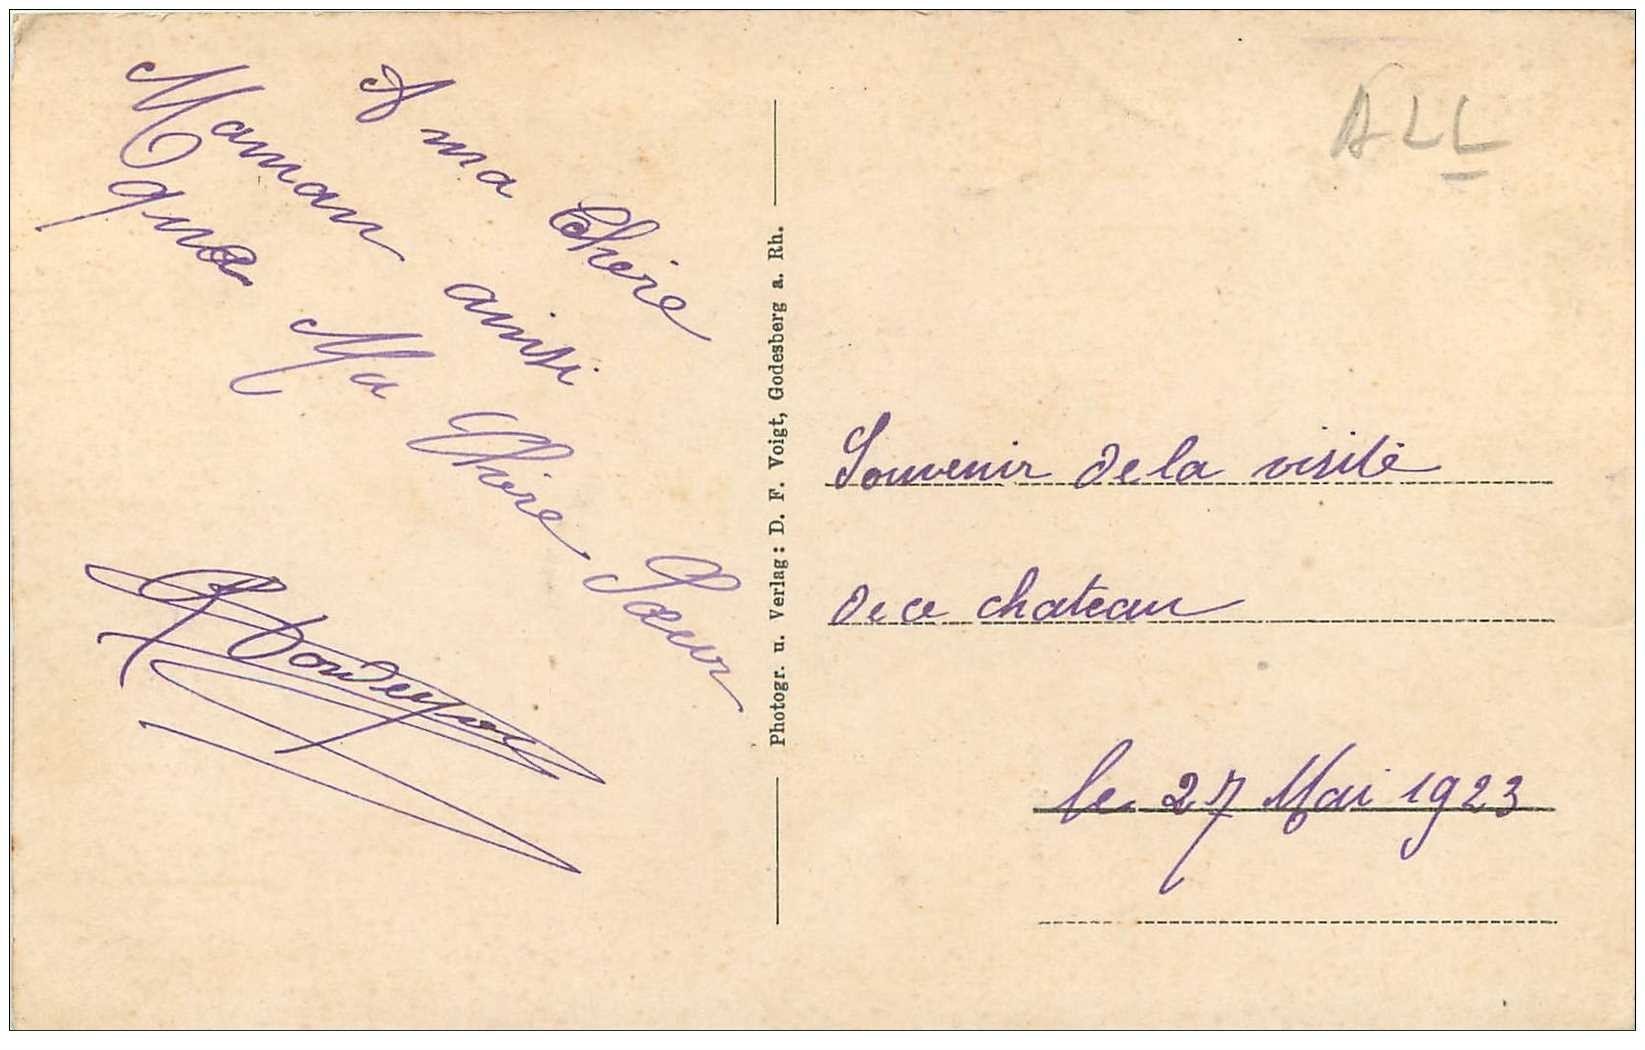 A ma Chère
Maman ainsi
que Ma Chère Sœur
Photogr. u. Verlag: D. F. Voigt, Godesberg a. Rh.
ALL
Souvenir de la visite
de ce chateau
le 27 Mai 1923